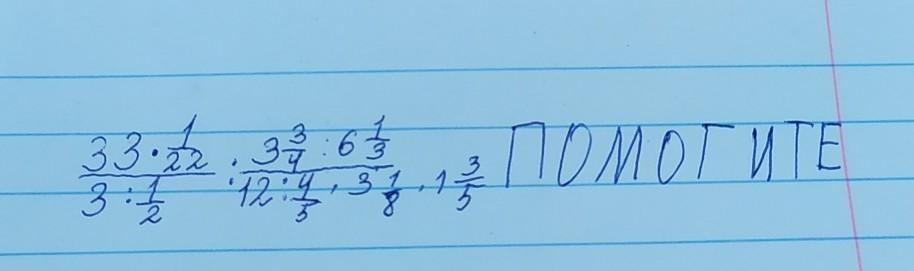 33 · 1/22 / 3 : 1/2 : 3 3/4 : 6 1/3 / 12 : 4/5 · 3 1/8 · 1 3/5 ПОМОГИТЕ